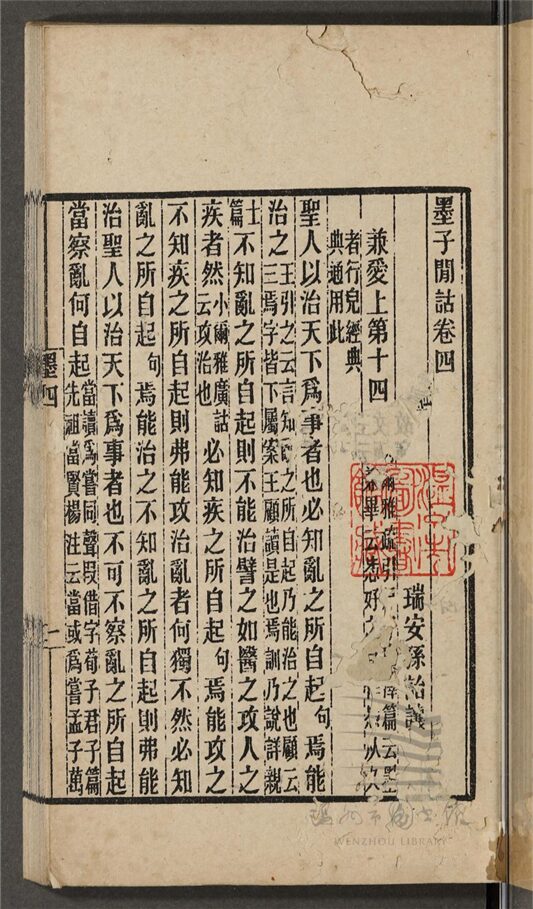 墨子閒詁卷四
瑞安孫詒讓
兼愛上第十四
爾雅疏引
篇云墨
畢云
好
者行皃經典
典通用此
聖人以治天下爲事者也必知亂之所自起句焉能
治之王引之云言知亂之所自起乃能治之也顧云
三焉字皆下屬案王顧讀是也焉訓乃說詳親
士篇不知亂之所自起則不能治譬之如醫之攻人之
疾者然小爾雅廣詁云攻治也必知疾之所自起句焉能攻之
不知疾之所自起則弗能攻治亂者何獨不然必知
亂之所自起句焉能治之不知亂之所自起則弗能
治聖人以治天下爲事者也不可不察亂之所自起
當察亂何自起當讀爲嘗同聲叚借字荀子君子篇
先祖當賢楊注云當或爲嘗孟子萬
墨四
一
WENZHOU LIBRARY